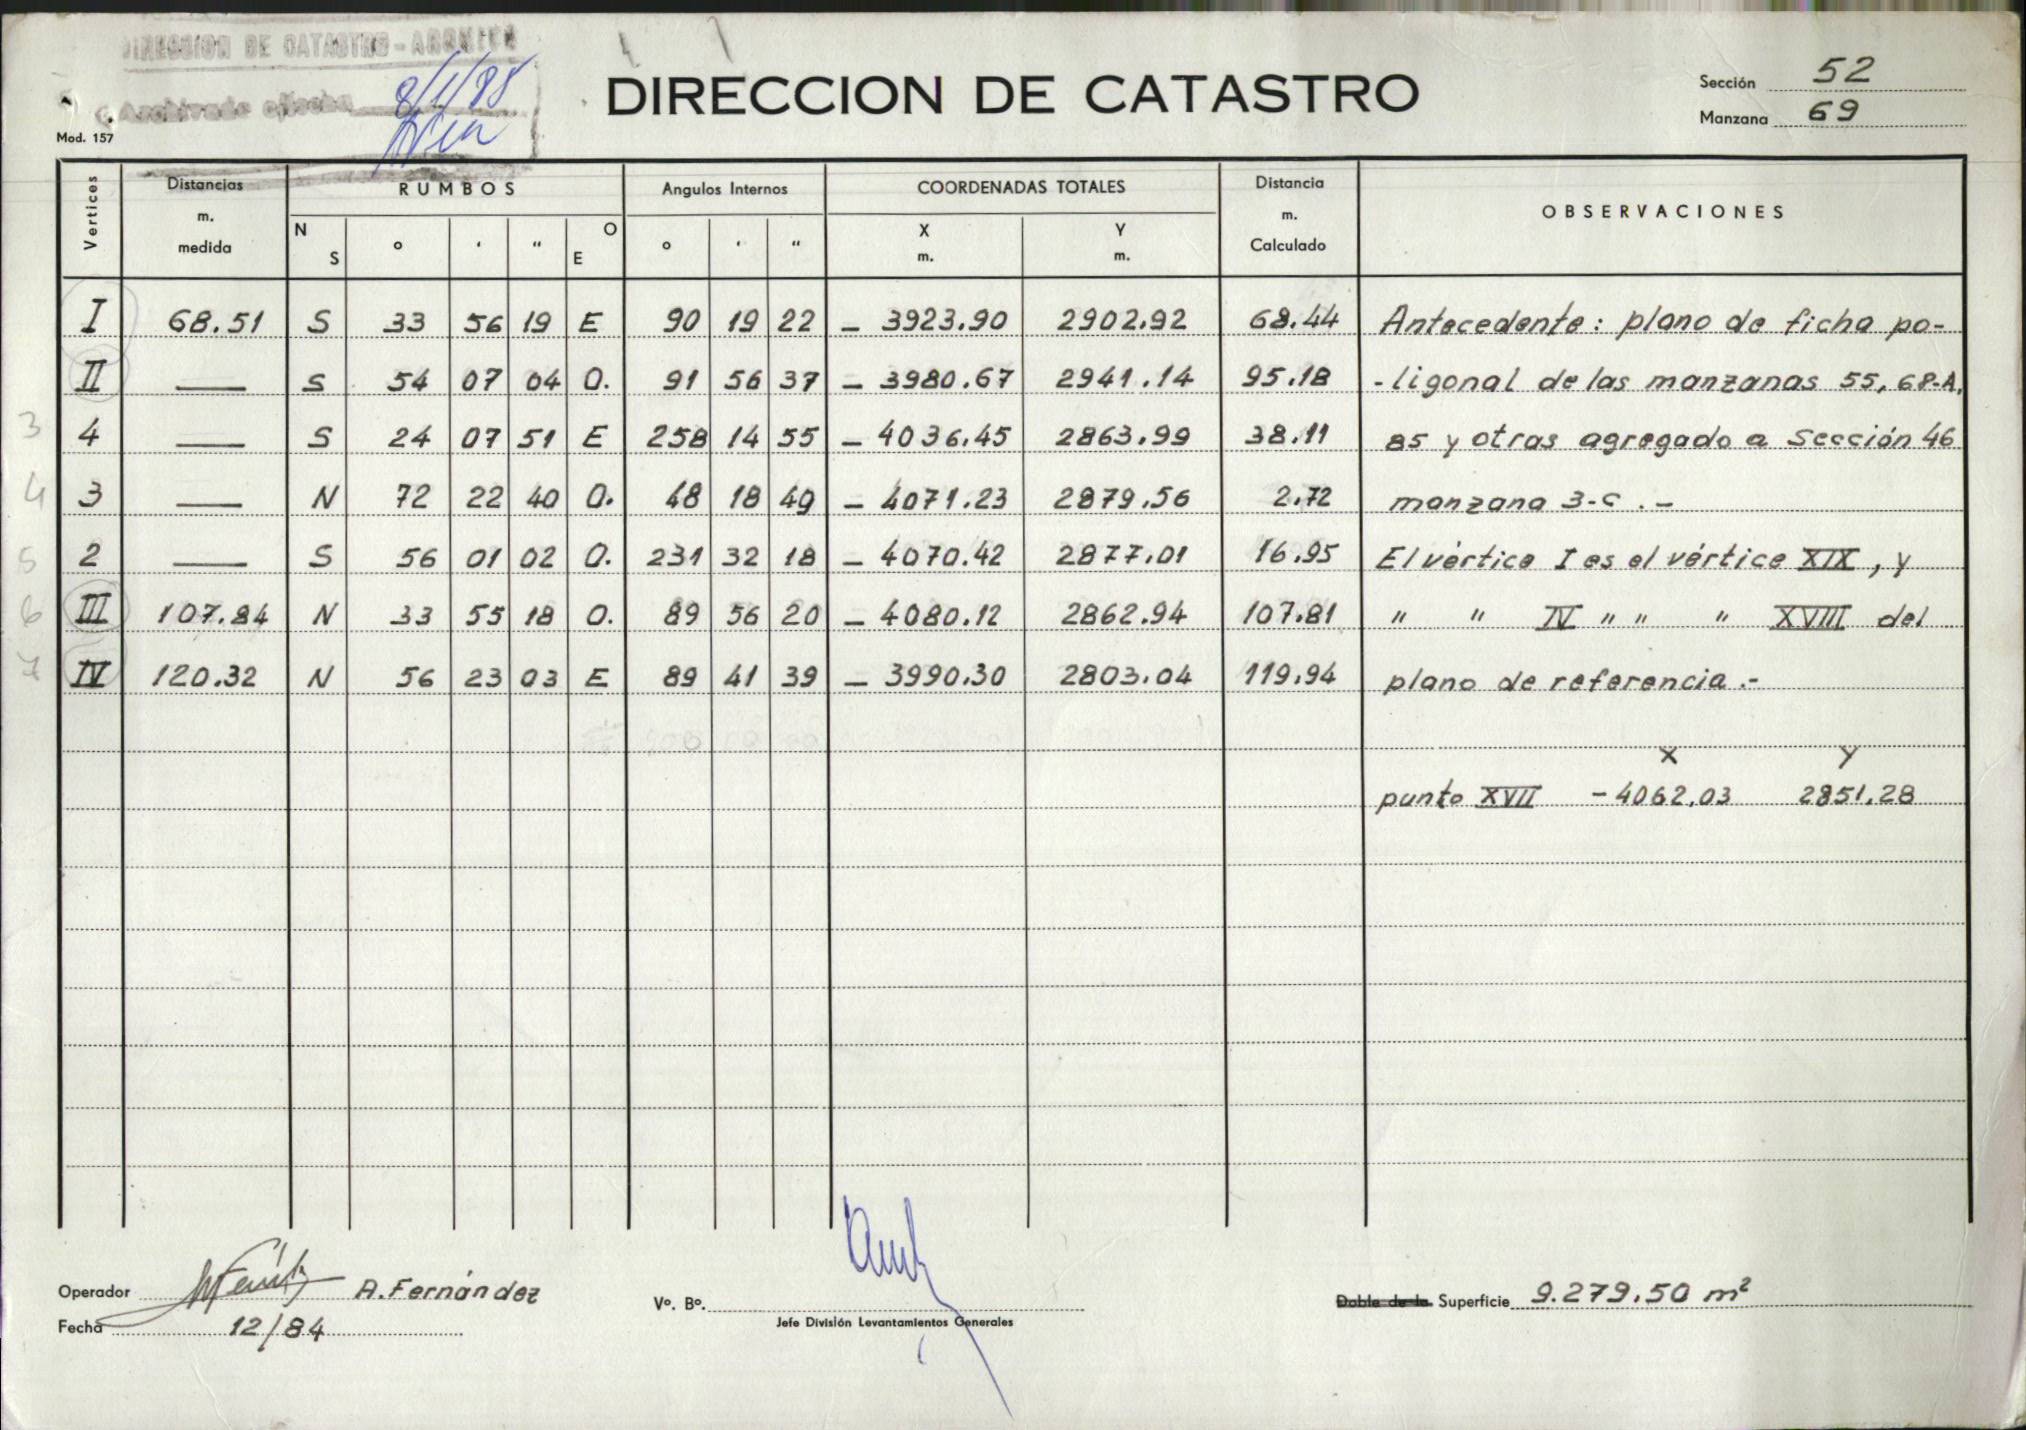 DIRECCION DE CATASTRO - ARCHIVO
Archivado c/fecha 8/1/85
DIRECCION DE CATASTRO
Sección 52
Manzana 69
Mod. 157
Vertices Distancias m. medida RUMBOS N S ° ‘ “ O E Angulos Internos ° ‘ “ COORDENADAS TOTALES X m. Y m. Distancia m. Calculado OBSERVACIONES
I 68.51 S 33 56 19 E 90 19 22 - 3923.90 2902.92 68.44 Antecedente: plano de ficha po-
II — S 54 07 04 O. 91 56 37 - 3980.67 2941.14 95.18 -ligonal de las manzanas 55, 68-A,
3 4 — S 24 07 51 E 258 14 55 - 4036.45 2863.99 38.11 85 y otras agregado a Sección 46
4 3 — N 72 22 40 O. 48 18 49 - 4071.23 2879.56 2.72 manzana 3-C . -
5 2 — S 56 01 02 O. 231 32 18 - 4070.42 2877.01 16.95 El vértice I es el vértice XIX, y
6 III 107.84 N 33 55 18 O. 89 56 20 - 4080.12 2862.94 107.81 " " IV " " " XVIII del
7 IV 120.32 N 56 23 03 E 89 41 39 - 3990.30 2803.04 119.94 plano de referencia.-
X Y
punto XVII - 4062,03 2851.28
Operador A. Fernández
Fecha 12/84
Vº. Bº.
Jefe División Levantamientos Generales
Doble de la Superficie 9.279.50 m²